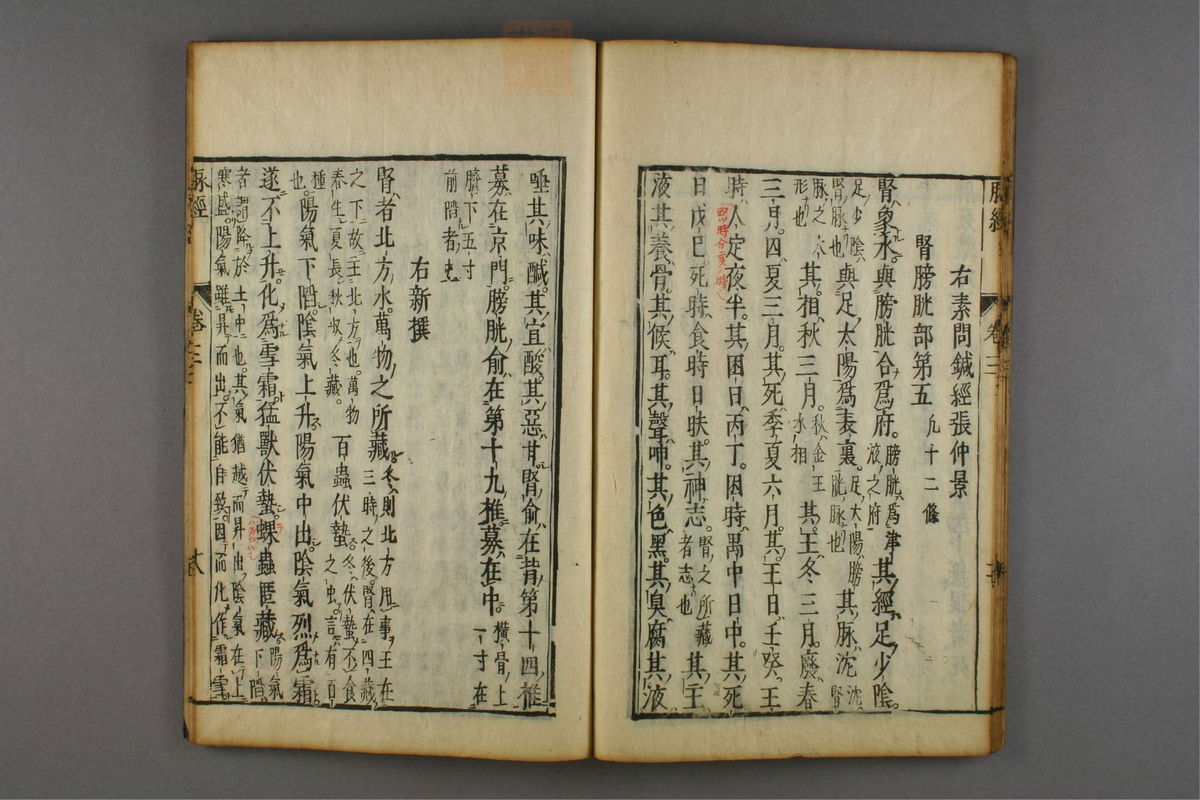 脉經
卷三
右素問鍼經張仲景
腎膀胱部第五 九十二條
腎象水。與膀胱合爲府。膀胱爲津液之府 其經足少陰。
足少陰腎脉也 與足太陽爲表裏。足太陽膀胱脉也 其脉沈 沈腎
脉之大形也 其相秋三月。秋金王水相 其王冬三月。廢春
三月。囚夏三月。其死季夏六月。其王日壬癸。王
時人定夜半。其困日丙丁。困時禺中日中。其死
四時今亥ノ時
日戊巳。死時食時日昳。其神志。腎之所藏者志也 其主
液。其養骨。其候耳。其聲呻。其色黑。其臭腐。其液
唾。其味醎。其宜酸。其惡甘。腎俞在背第十四椎。
募在京門。膀胱俞在第十九椎。募在中 橫骨上一寸在
臍下五寸前陷者是
右新撰
腎者北方水。萬物之所藏。冬則北方用事。王在三時之後。腎在四藏
之下故王北方也。萬物春生夏長秋收冬藏。 百蟲伏蟄。冬伏蟄不食之虫。言有百
種也。陽氣下陷。陰氣上升。陽氣中出。陰氣烈爲霜。
遂不上升。化爲雪霜。猛獸伏蟄。蜾蟲匿藏。陽氣下陷
者謂降於土中也。其氣猶越而昇出。陰氣在上
寒盛。陽氣雖昇而出。不能自致。因而化作霜雪
脉經
卷三